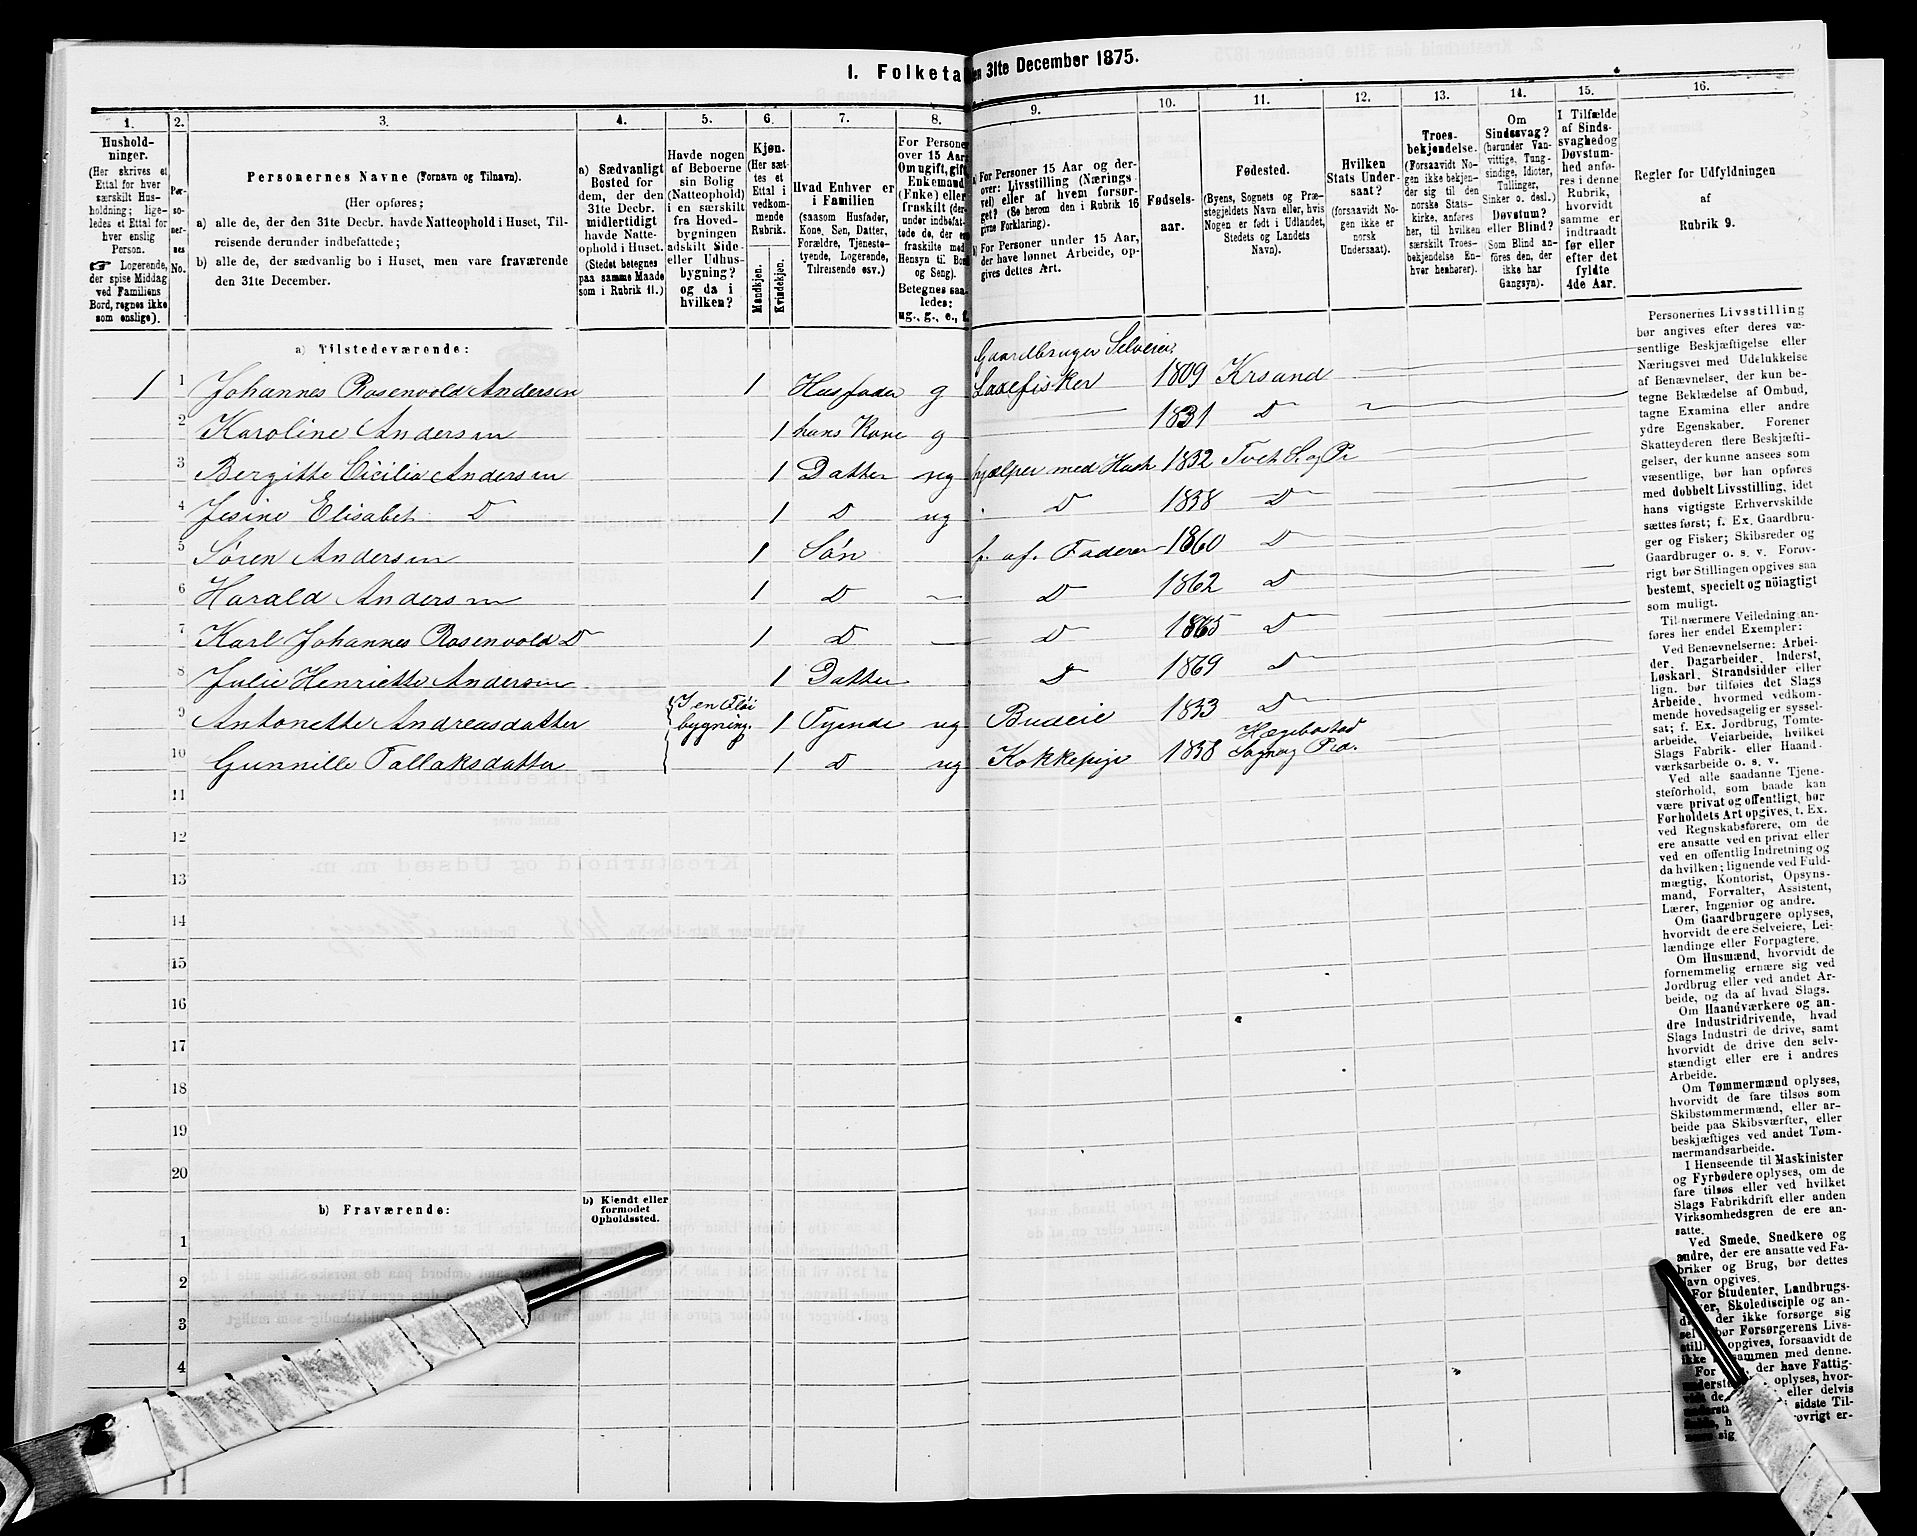 1. Folketa
en 31te December 1875.
1.
2.
3.
4.
5.
6.
7.
8.
9.
10.
11.
12.
13.
14.
15.
16.
Hushold-
ninger.
(Her skrives et
Ettal for hver
særskilt Hus-
holdning; lige-
ledes et Ettal for
hver enslig
Person.
☞ Logerende,
der spise Middag
ved Familiens
Bord, regnes ikke
som enslige).
Per-
so-
ner-
nes
No.
Personernes Navne (Fornavn og Tilnavn).
(Her opføres;
a) alle de, der den 31te Decbr. havde Natteophold i Huset, Til-
reisende derunder indbefattede;
b) alle de, der sædvanlig bo i Huset, men vare fraværende
den 31te December.
a) Sædvanligt
Bosted for
dem, der den
31te Decbr.
midlertidigt
havde Natte-
ophold i Huset.
(Stedet betegnes
paa samme Maade
som i Rubrik 11.)
Havde nogen
af Beboerne
sin Bolig
(Natteophold)
i en særskilt
fra Hoved-
bygningen
adskilt Side-
eller Udhus-
bygning?
og da i
hvilken?
Kjøn.
(Her sæt-
tes et
Ettal i
vedkom-
mende
Rubrik.
Mandkjøn.
Kvindekjøn.
Hvad Enhver er
i Familien
(saasom Husfader,
Kone, Søn, Datter,
Forældre, Tjeneste-
tyende, Logerende,
Tilreisende osv.)
For Personer
over 15 Aar:
Om ugift, gift,
Enkemand
(Enke) eller
fraskilt (der-
under indbefat-
tede de, der ere
fraskilte med
Hensyn til Bord
og Seng).
Betegnes saa-
ledes:
ug., g., e., f.
a) For Personer 15 Aar og der-
over: Livsstilling (Nærings-
vei) eller af hvem forsør-
get? (Se herom den i Rubrik 16
givne Forklaring).
b) For Personer under 15 Aar,
der have lønnet Arbeide, op-
gives dettes Art.
Fødsels-
aar.
Fødested.
(Byens, Sognets og Præ-
stegjeldets Navn eller, hvis
Nogen er født i Udlandet,
Stedets og Landets
Navn).
Hvilken
Stats Under-
saat?
(forsaavidt No-
gen ikke er
norsk
Undersaat).
Troes-
bekjendelse.
(Forsaavidt No-
gen ikke bekjen-
der sig til den
norske Stats-
kirke, anføres
her, til hvilken
særskilt Troes-
bekjendelse En-
hver henhører).
Om
Sindssvag?
(herunder Van-
vittige, Tung-
sindige, Idioter,
Tullinger,
Sinker o. desl.)
Døvstum?
eller Blind?
(Som Blind an-
føres den, der
ikke har
Gangsyn).
I Tilfælde
af Sinds-
svaghed og
Døvstum-
hed anfø-
res i denne
Rubrik,
hvorvidt
samme er
indtraadt
før eller
efter det
fyldte
4de Aar.
Regler for Udfyldningen
af
Rubrik 9.
a) Tilstedeværende:
Gaardbruger Selveier,
1 1 Johannes Rosenvold Andersen 1 Husfader g Laxefisker 1809 Krsand
2 Karoline Andersen 1 hans Kone g 1831 D
3 Bergitte Cicilia Andersen 1 Datter ug hjælper med Hush 1832 Tvet S. og Pr
4 Jesine Elisabet D 1 D ug D 1838 D
5 Søren Andersen 1 Søn f. af. Faderen 1860 D
6 Harald Andersen 1 D D 1862 D
7 Karl Johannes Rosenvold D 1 D D 1865 D
8 Julie Henriette Andersen 1 Datter D 1869 D
9 Antonette Andreasdatter I en Fløi bygning. 1 Tyende ug Budeie 1833 D
10 Gunnille Tallaksdatter 1 D ug Kokkepige 1838 Hægebostad Sogn og Præ.
11
12
13
14
15
16
17
18
19
20
b) Fraværende:
b) Kjendt eller
formodet
Opholdssted.
1
2
3
4
Personernes Livsstilling
bør angives efter deres væ-
sentlige Beskjæftigelse eller
Næringsvei med Udelukkelse
af Benævnelser, der kun be-
tegne Beklædelse af Ombud,
tagne Examina eller andre
ydre Egenskaber. Forener
Skatteyderen flere Beskjæfti-
gelser, der kunne ansees som
væsentlige, bør han opføres
med dobbelt Livsstilling, idet
hans vigtigste Erhvervskilde
sættes først; f. Ex. Gaardbru-
ger og Fisker; Skibsreder og
Gaardbruger o. s. v. Forøv-
rigt bør Stillingen opgives saa
bestemt, specielt og nöiagtigt
som muligt.
Til nærmere Veiledning an-
føres her endel Exempler:
Ved Benævnelserne: Arbei-
der, Dagarbeider, Inderst,
Løskarl, Strandsidder eller
lign. bør tilføies det Slags
Arbeide, hvormed vedkom-
mende hovedsagelig er syssel-
sat; f. Ex. Jordbrug, Tomte-
arbeide, Veiarbeide, hvilket
Slags Fabrik- eller Haand-
værksarbeide o. s. v.
Ved alle saadanne Tjene-
steforhold, som baade kan
være privat og offentligt, bør
Forholdets Art opgives, t. Ex.
ved Regnskabsførere, om de
ere ansatte ved en privat eller
ved en offentlig Indretning og
da hvilken; lignende ved Fuld-
mægtig, Kontorist, Opsyns-
mand, Forvalter, Assistent,
Lærer, Ingeniør og andre.
Om Gaardbrugere oplyses,
hvorvidt de ere Selveiere, Lei-
lændinge eller Forpagtere.
Om Husmænd, hvorvidt de
fornemmelig ernære sig ved
Jordbrug eller ved andet Ar-
beide, og da af hvad Slags.
Om Haandværkere og an-
dre Industridrivende, hvad
Slags Industri de drive, samt
hvorvidt de drive den selv-
stændigt eller ere i andres
Arbeide.
Om Tømmermænd oplyses,
hvorvidt de fare tilsøs som
Skibstømmermænd, eller ar-
beide paa Skibsværfter, eller
beskjæftiges ved andet Tøm-
mermandsarbeide.
I Henseende til Maskinister
og Fyrbødere oplyses, om de
fare tilsøs eller ved hvilket
Slags Fabrikdrift eller anden
Virksomhedsgren de ere an-
satte.
Ved Smede, Snedkere og
andre, der ere ansatte ved Fa-
briker og Brug, bør dettes
Navn opgives.
For Studenter, Landbrugs-
Skoledisciple og an-
der ikke forsørge sig
bør Forsørgerens Livs-
opgives, forsaavidt de
ikke sammen med denne.
For der have Fattig-
oplyses, hvor-
eller delvis
sidste Til-
øvrigt er-